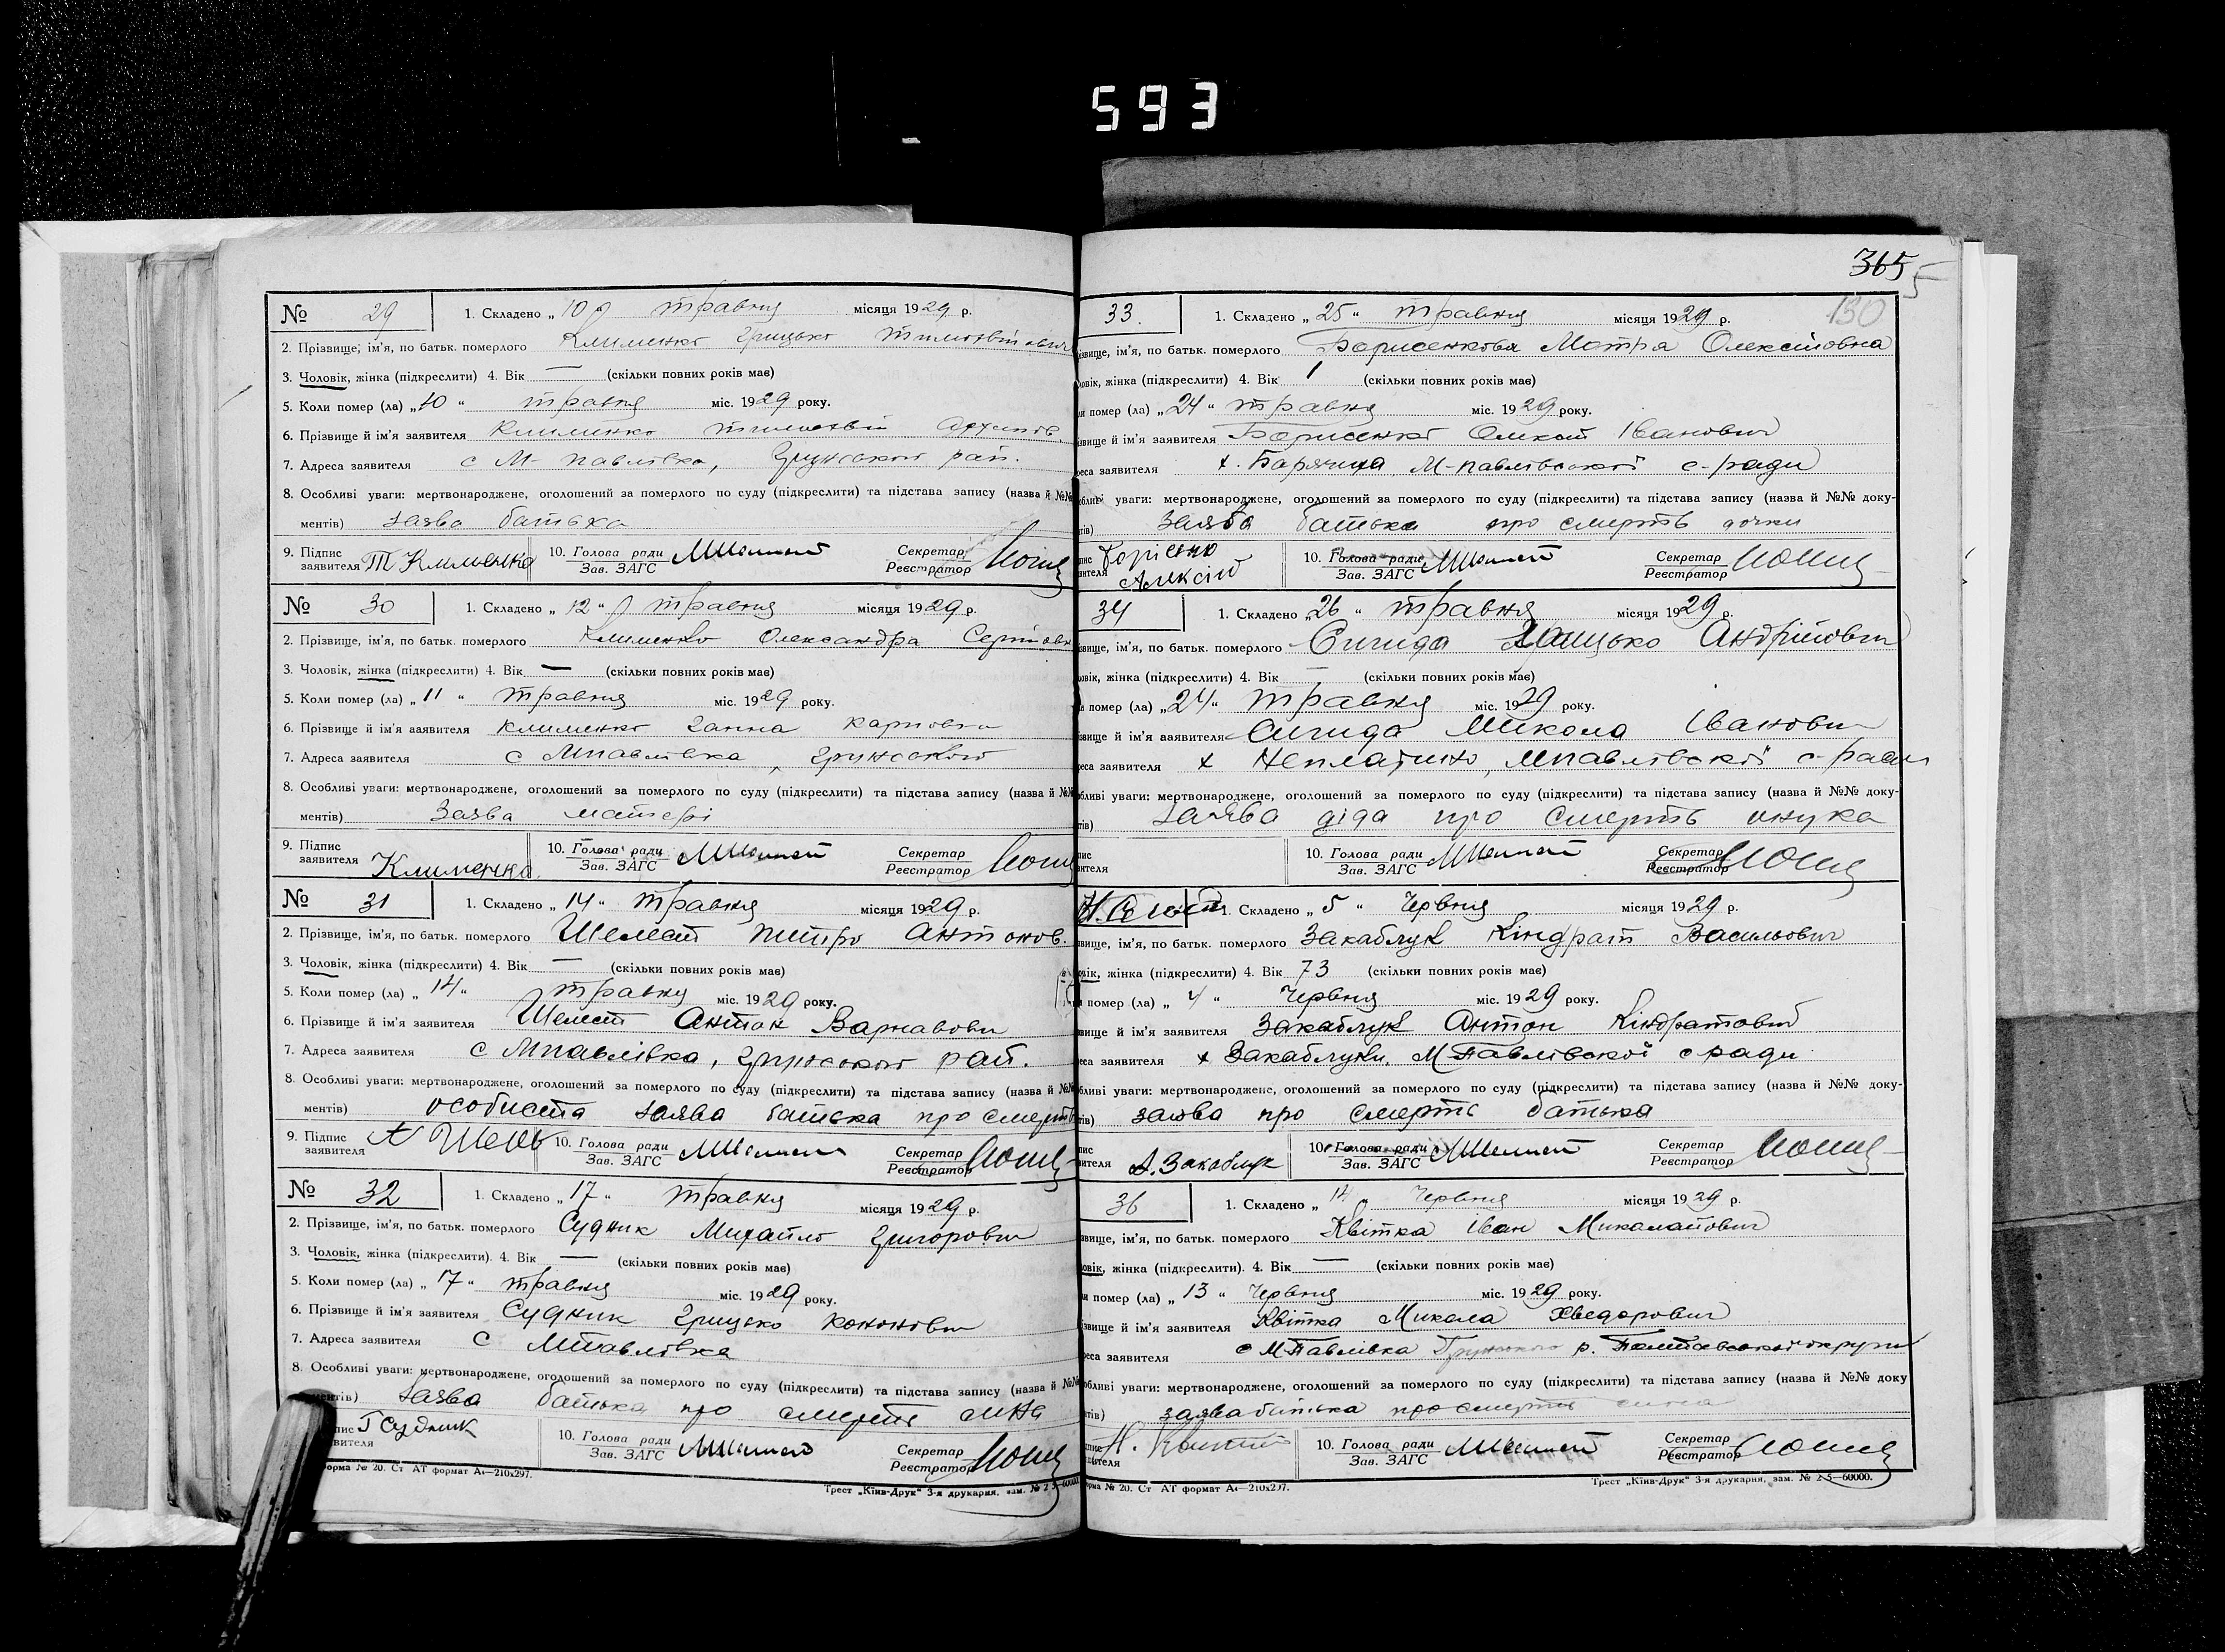 593
№ 29 1. Складено „ 10 " травня місяця 1929 р.
2. Прізвище, ім'я, по батьк. померлого Клименко Грицько Тимохвійович
3. Чоловік, жінка (підкреслити) 4. Вік — (скільки повних років має)
5. Коли помер (ла) „ 10 " травня міс. 1929 року.
6. Прізвище й ім'я заявителя Клименко Тимохвій
7. Адреса заявителя с М-павлівка, Грунського рай.
8. Особливі уваги: мертвонароджене, оголошений за померлого по суду (підкреслити) та підстава запису (назва й №№
ментів) заява батька
9. Підпис заявителя Т Клименко 10. Голова ради Зав. ЗАГС Секретар Реєстратор
№ 30 1. Складено „ 12 " травня місяця 1929 р.
2. Прізвище, ім'я, по батьк. померлого Клименко Олександра Сергіовн
3. Чоловік, жінка (підкреслити) 4. Вік — (скільки повних років має)
5. Коли помер (ла) „ 11 " травня міс. 1929 року.
6. Прізвище й ім'я заявителя Клименко Ганна Карповна
7. Адреса заявителя с Мпавлівка, Грунського
8. Особливі уваги: мертвонароджене, оголошений за померлого по суду (підкреслити) та підстава запису (назва й №№
ментів) Заява матері
9. Підпис заявителя Клименко 10. Голова ради Зав. ЗАГС Секретар Реєстратор
№ 31 1. Складено „ 14 " травня місяця 1929 р.
2. Прізвище, ім'я, по батьк. померлого Шелест Питро Антонов.
3. Чоловік, жінка (підкреслити) 4. Вік — (скільки повних років має)
5. Коли помер (ла) „ 14 " травня міс. 1929 року.
6. Прізвище й ім'я заявителя Шелест Антон Варнавович
7. Адреса заявителя с Мпавлівка, Грунського рай.
8. Особливі уваги: мертвонароджене, оголошений за померлого по суду (підкреслити) та підстава запису (назва й №№
ментів) особиста заява батька про смерть
9. Підпис заявителя 10. Голова ради Зав. ЗАГС Секретар Реєстратор
№ 32 1. Складено „ 17 " травня місяця 1929 р.
2. Прізвище, ім'я, по батьк. померлого Судник Михайло Григорович
3. Чоловік, жінка (підкреслити). 4. Вік — (скільки повних років має)
5. Коли помер (ла) „ 17 " травня міс. 1929 року.
6. Прізвище й ім'я заявителя Судник Грицько Кононович
7. Адреса заявителя с Мпавлівка
8. Особливі уваги: мертвонароджене, оголошений за померлого по суду (підкреслити) та підстава запису (назва й №№
ментів) Заява батька про смерть сина
пис вителя Г Судник 10. Голова ради Зав. ЗАГС Секретар Реєстратор
орма № 20. Ст АТ формат А4—210х297. Трест „Київ-Друк" 3-я друкарня, зам. №
365
130
33. 1. Складено „ 25 " травня місяця 1929 р.
ізвище, ім'я, по батьк. померлого Борисенкова Мотря Олексійовна
ловік, жінка (підкреслити) 4. Вік 1 (скільки повних років має)
ли помер (ла) „ 24 " травня міс. 1929 року.
звище й ім'я заявителя Борисенко Олексій Іванович
реса заявителя х. М-павлівської с-ради
бливі уваги: мертвонароджене, оголошений за померлого по суду (підкреслити) та підстава запису (назва й №№ доку-
тів) заява батька про смерть дочки
пис вителя Борісенко Алексій 10. Голова ради Зав. ЗАГС Секретар Реєстратор
34 1. Складено „ 26 " травня місяця 1929 р.
звище, ім'я, по батьк. померлого Сигида Грицько Андрійович
овік, жінка (підкреслити) 4. Вік — (скільки повних років має)
и помер (ла) „ 24 " травня міс. 1929 року.
звище й ім'я заявителя Сигида Микола Іванович
реса заявителя х Мпавлівської с-ради
бливі уваги: мертвонароджене, оголошений за померлого по суду (підкреслити) та підстава запису (назва й №№ доку-
тів) заява діда про смерть онука
пис вителя 10. Голова ради Зав. ЗАГС Секретар Реєстратор
1. Складено „ 5 " Червня місяця 1929 р.
звище, ім'я, по батьк. померлого Закаблук Кіндрат Васильович
овік, жінка (підкреслити) 4. Вік 73 (скільки повних років має)
и помер (ла) „ 4 " Червня міс. 1929 року.
звище й ім'я заявителя Закаблук Антон Кіндратовий
реса заявителя х Закаблуки, М Павлівської с ради
бливі уваги: мертвонароджене, оголошений за померлого по суду (підкреслити) та підстава запису (назва й №№ доку-
тів) заява про смерть батька
пис вителя А. Закаблук 10. Голова ради Зав. ЗАГС Секретар Реєстратор
36 1. Складено „ 14 Червня місяця 1929 р.
звище, ім'я, по батьк. померлого Квітка Іван Миколайович
овік, жінка (підкреслити). 4. Вік — (скільки повних років має)
и помер (ла) „ 13 " Червня міс. 1929 року.
звище й ім'я заявителя Квітка Микола Хведорович
реса заявителя с М Павлівка Грунського р. Полтавської округи
бливі уваги: мертвонароджене, оголошений за померлого по суду (підкреслити) та підстава запису (назва й №№ доку
тів) заява батька про смерть сина
пис вителя 10. Голова ради Зав. ЗАГС Секретар Реєстратор
рма № 20. Ст АТ формат А4—210х297. Трест „Київ-Друк" 3-я друкарня, зам. №